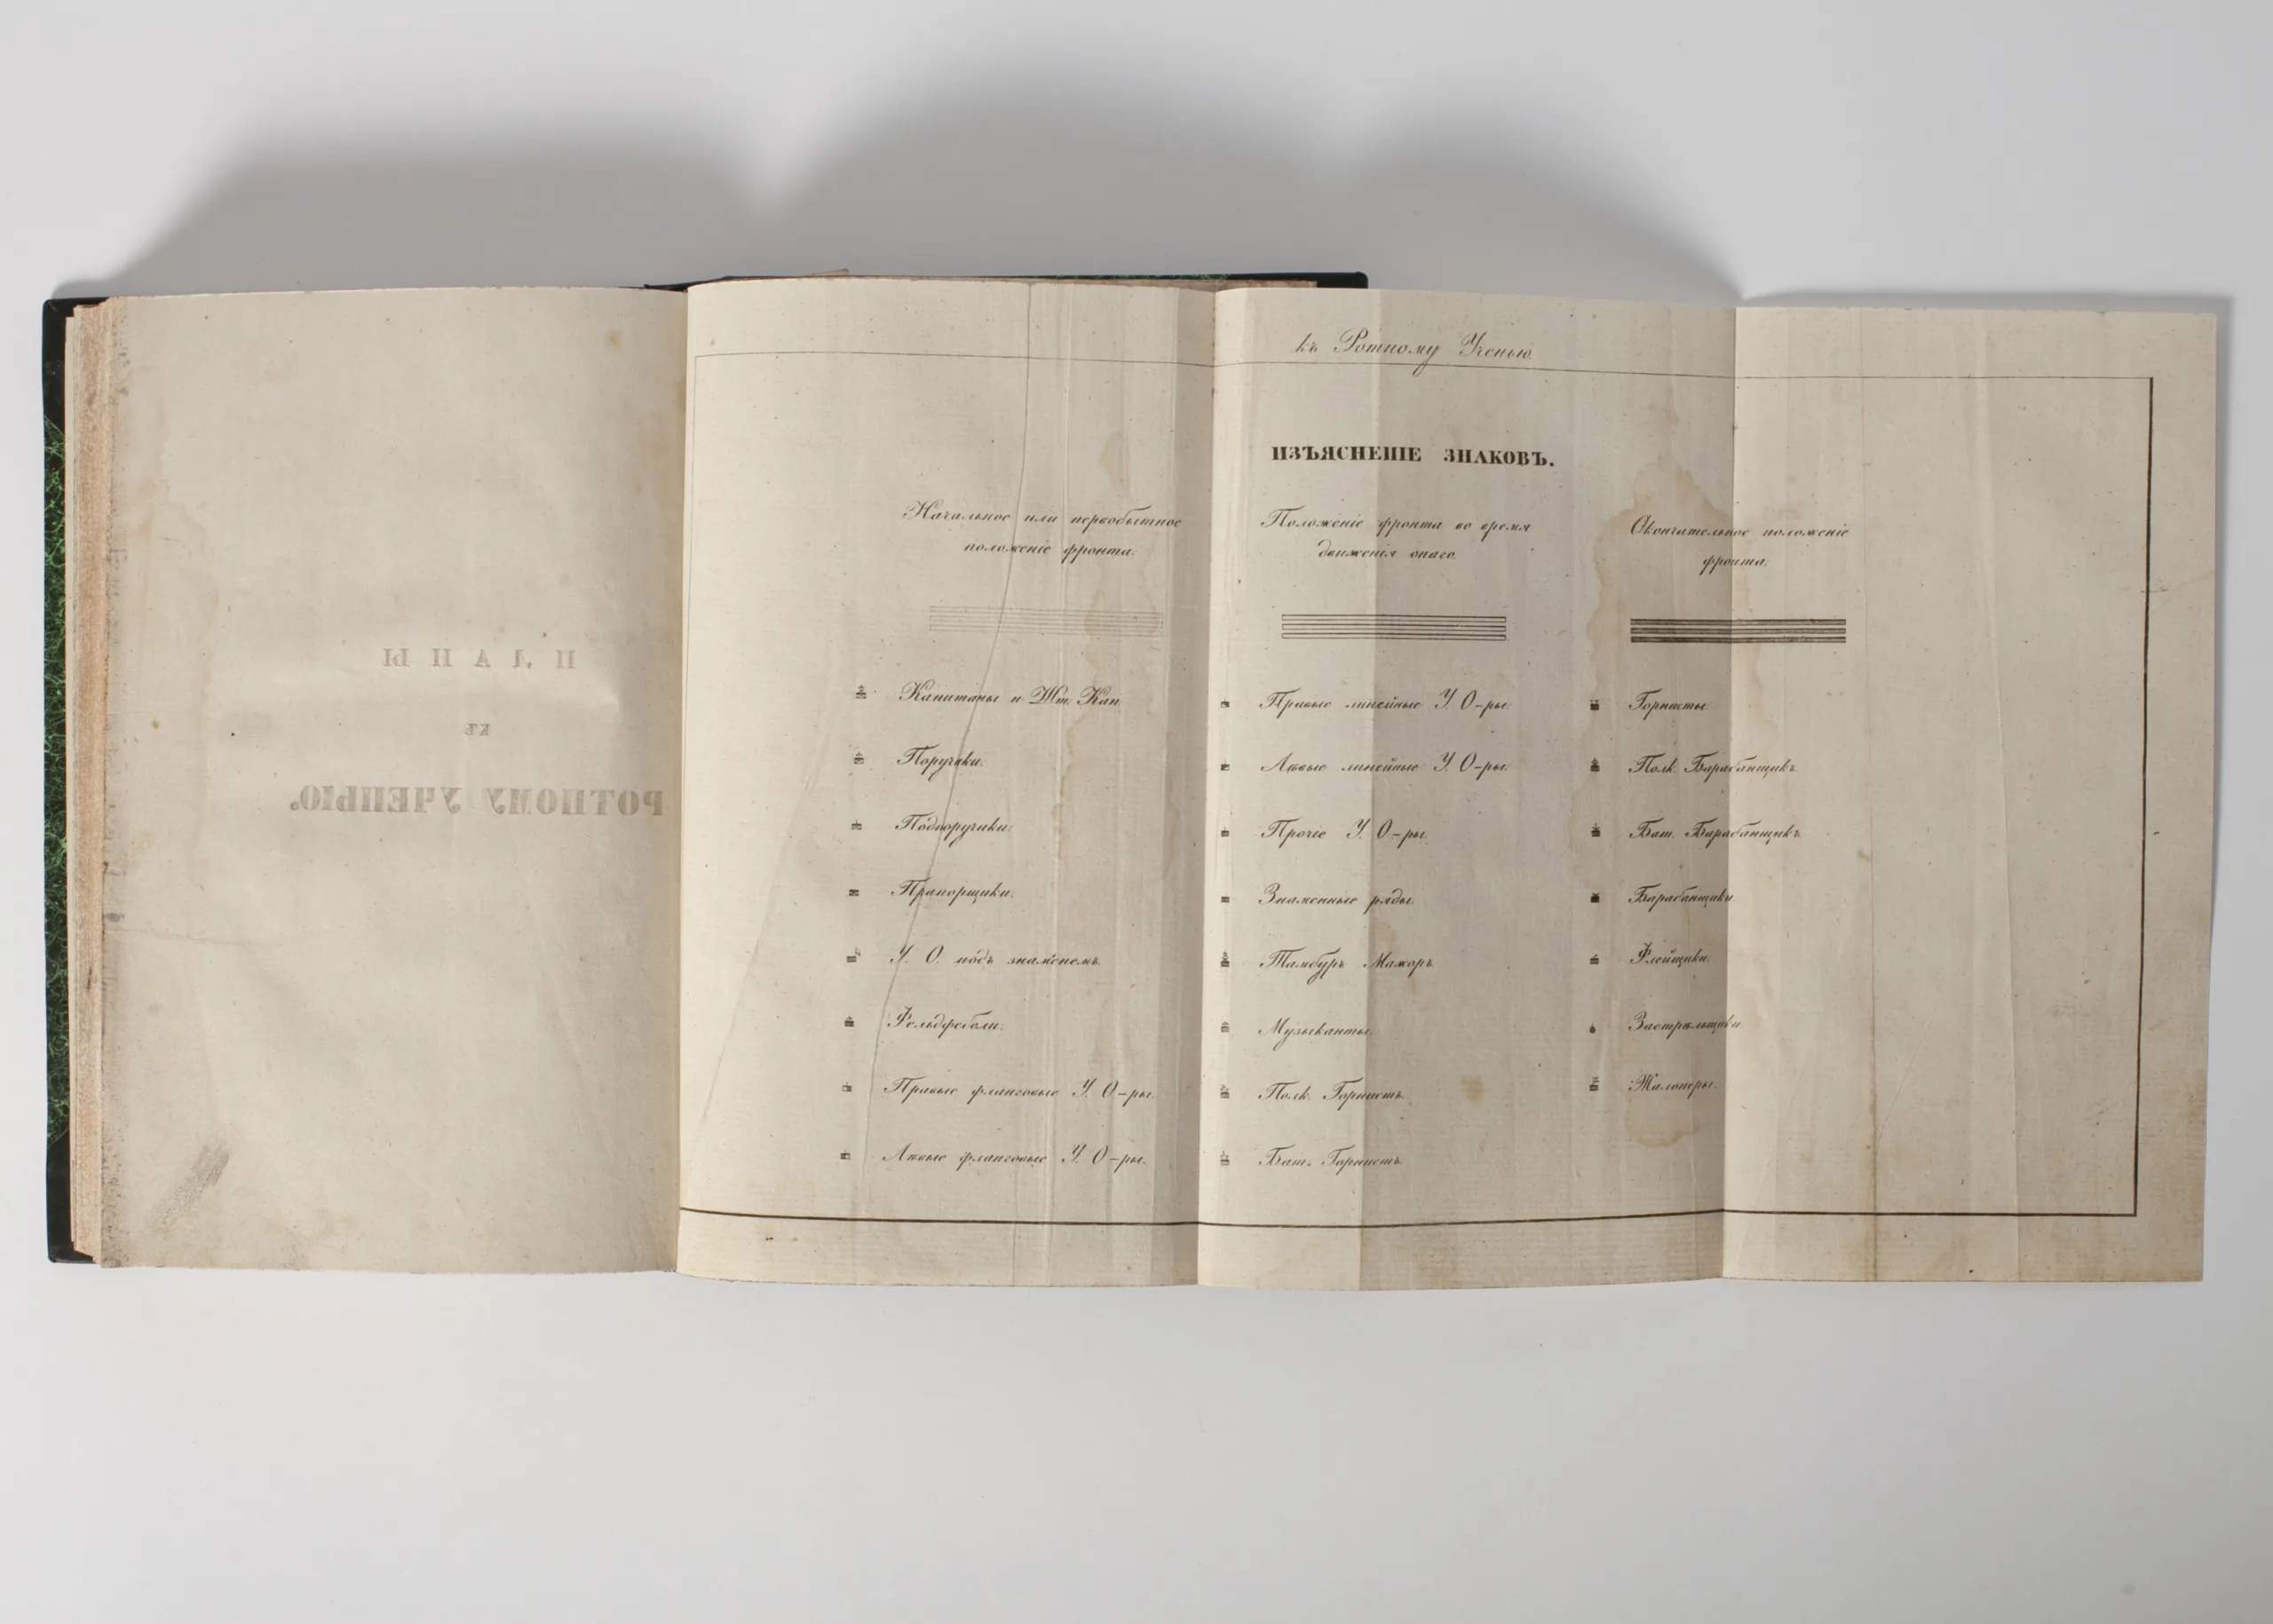 ПЛАНЫ
КЪ
РОТНОМУ УЧЕНЬЮ.
къ Ротному Ученью.
ИЗЪЯСНЕНІЕ ЗНАКОВЪ.
Начальное или первобытное
положеніе фронта.
Капитаны и Шт. Кап.
Поручики.
Подпоручики.
Прапорщики.
У. О. подъ знаменемъ.
Фельдфебели.
Правые фланговые У. О-ры.
Лѣвые фланговые У. О-ры.
Положеніе фронта во время
движенія онаго.
Правые линейные У. О-ры.
Лѣвые линейные У. О-ры.
Прочіе У. О-ры.
Знаменные ряды.
Тамбуръ Мажоръ.
Музыканты.
Полк. Горнистъ.
Бат. Горнистъ.
Окончательное положеніе
фронта.
Горнисты.
Полк. Барабанщикъ.
Бат. Барабанщикъ.
Барабанщики.
Флейщики.
Застрѣльщики
Жалонеры.